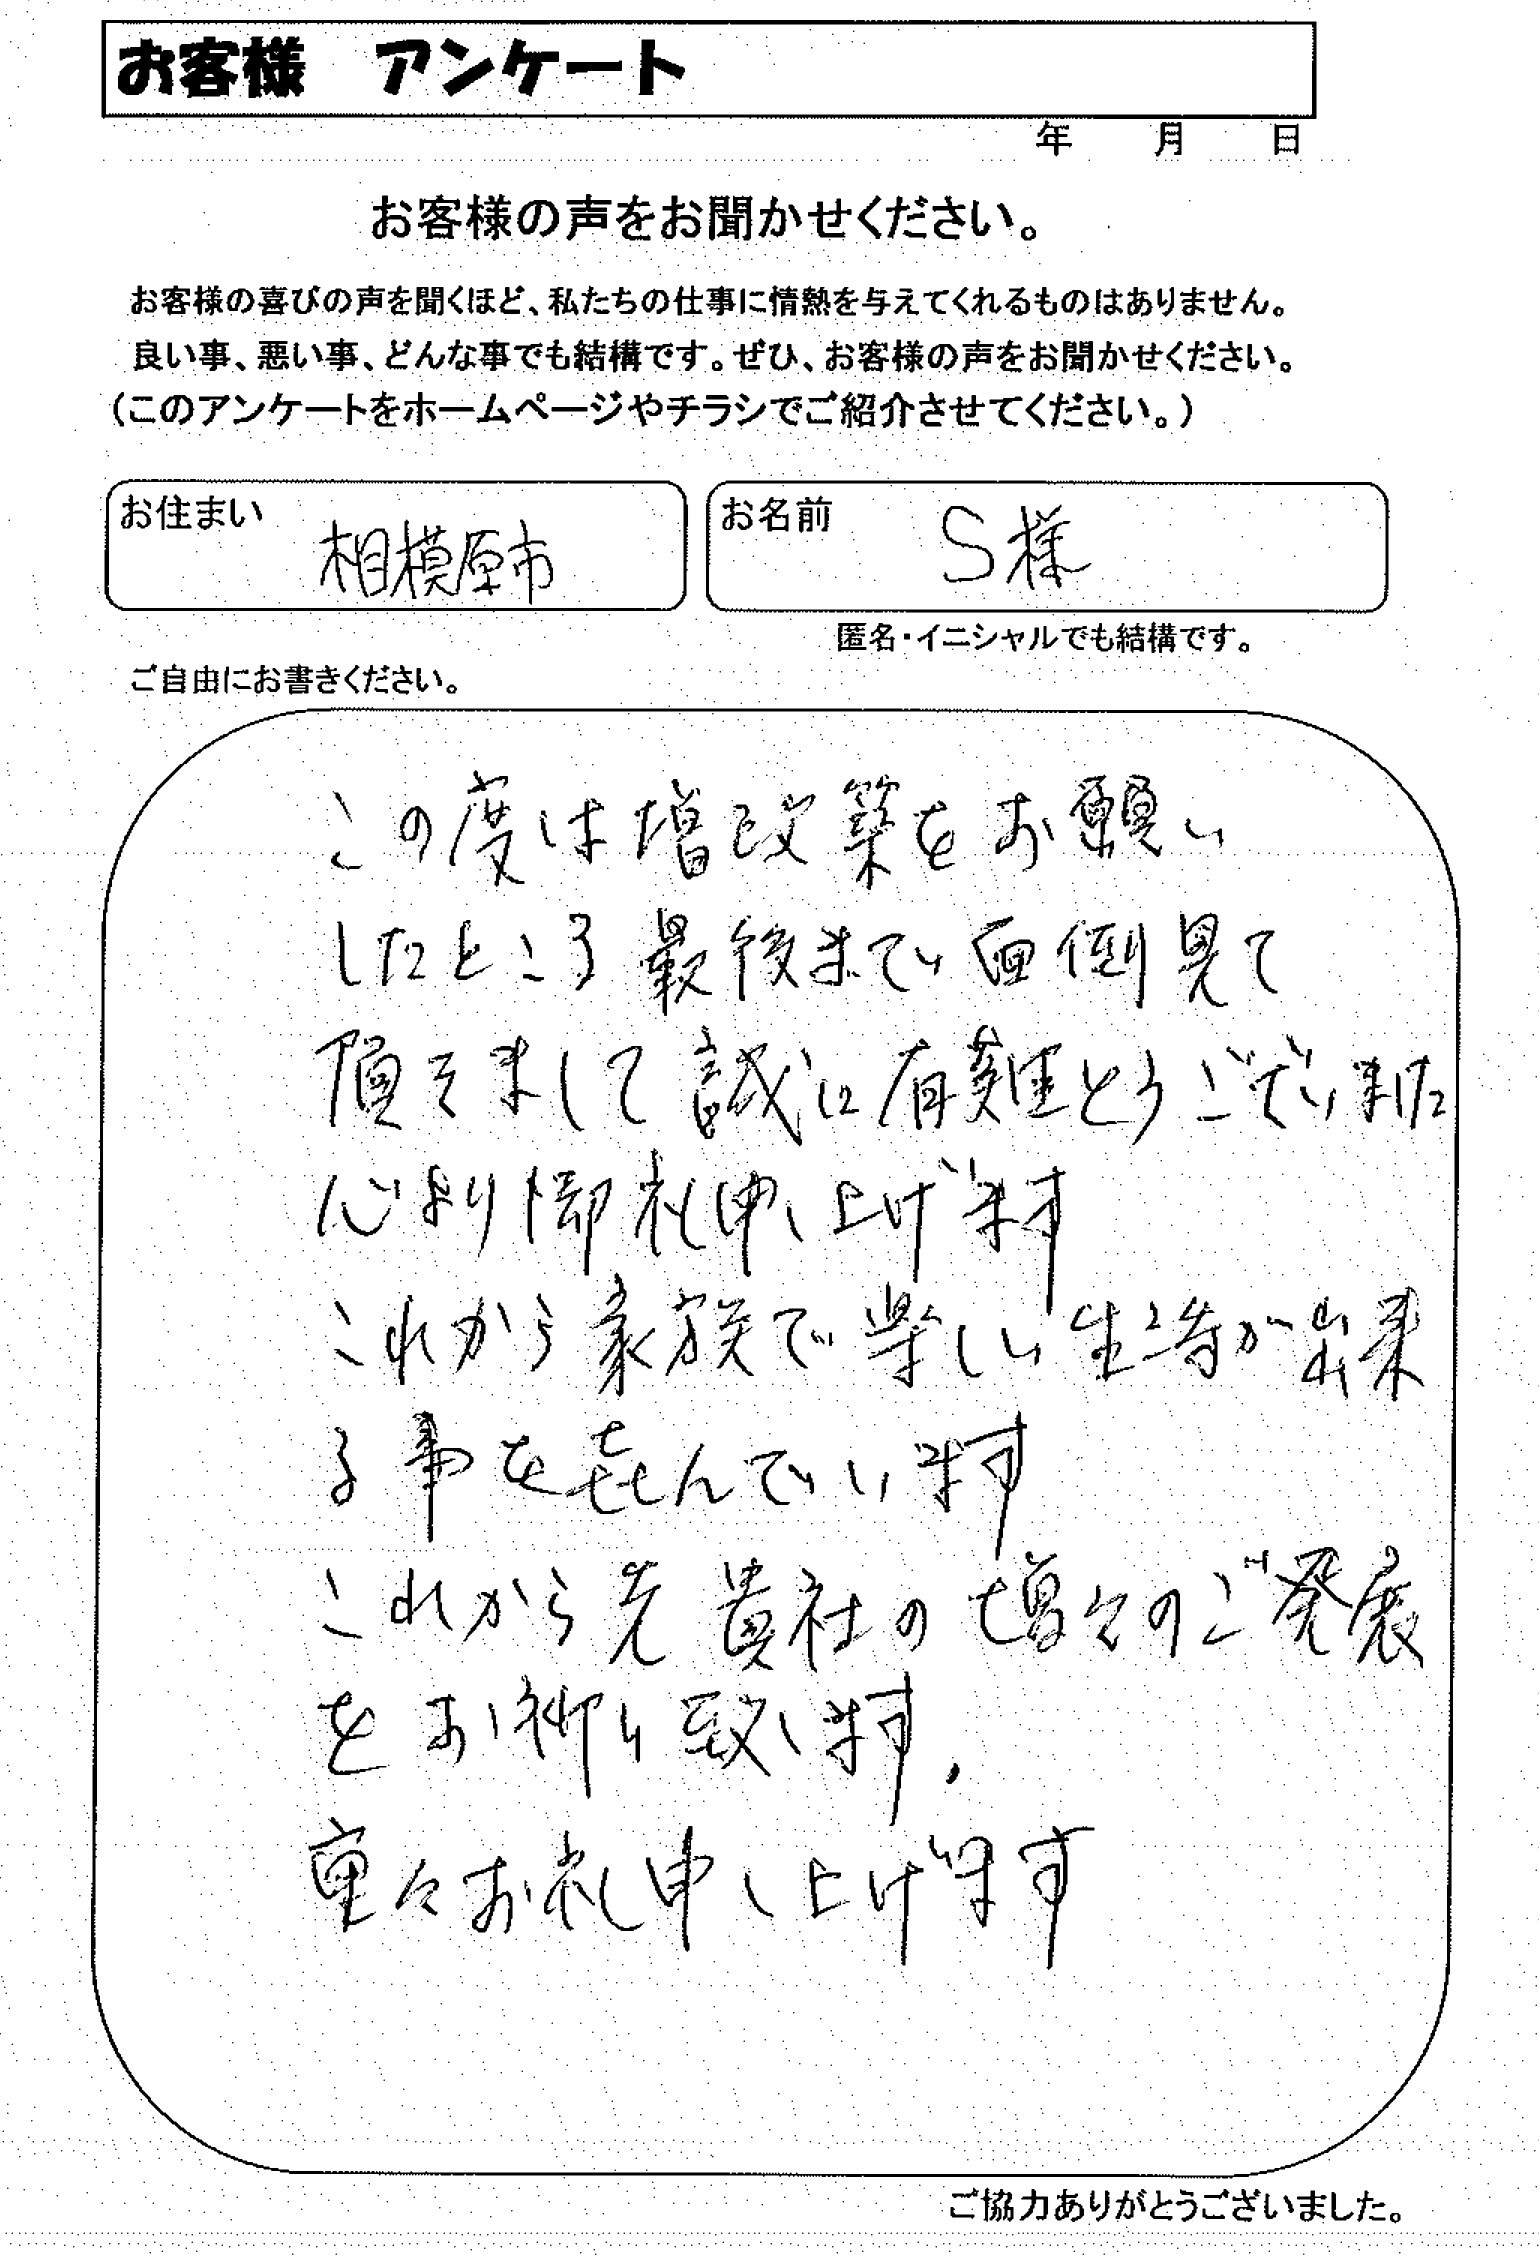 お客様 アンケート
年 月 日
お客様の声をお聞かせください。
お客様の喜びの声を聞くほど、私たちの仕事に情熱を与えてくれるものはありません。
良い事、悪い事、どんな事でも結構です。ぜひ、お客様の声をお聞かせください。
（このアンケートをホームページやチラシでご紹介させてください。）
お住まい 相模原市
お名前 S様
匿名・イニシャルでも結構です。
ご自由にお書きください。
この度は増改築をお願い
したところ最後まで面倒見て
頂きまして誠に有難とうございました
心より御礼申し上げます
これから家族で楽しい生活が出来
る事を㐂んでいます
これから先貴社の増々のご発展
をお祈り致します.
重々お礼申し上げます
ご協力ありがとうございました。